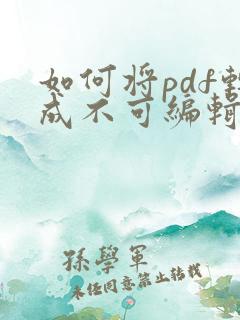 如何将pdf转
成不可编辑
孫學軍
未经同意禁止转载